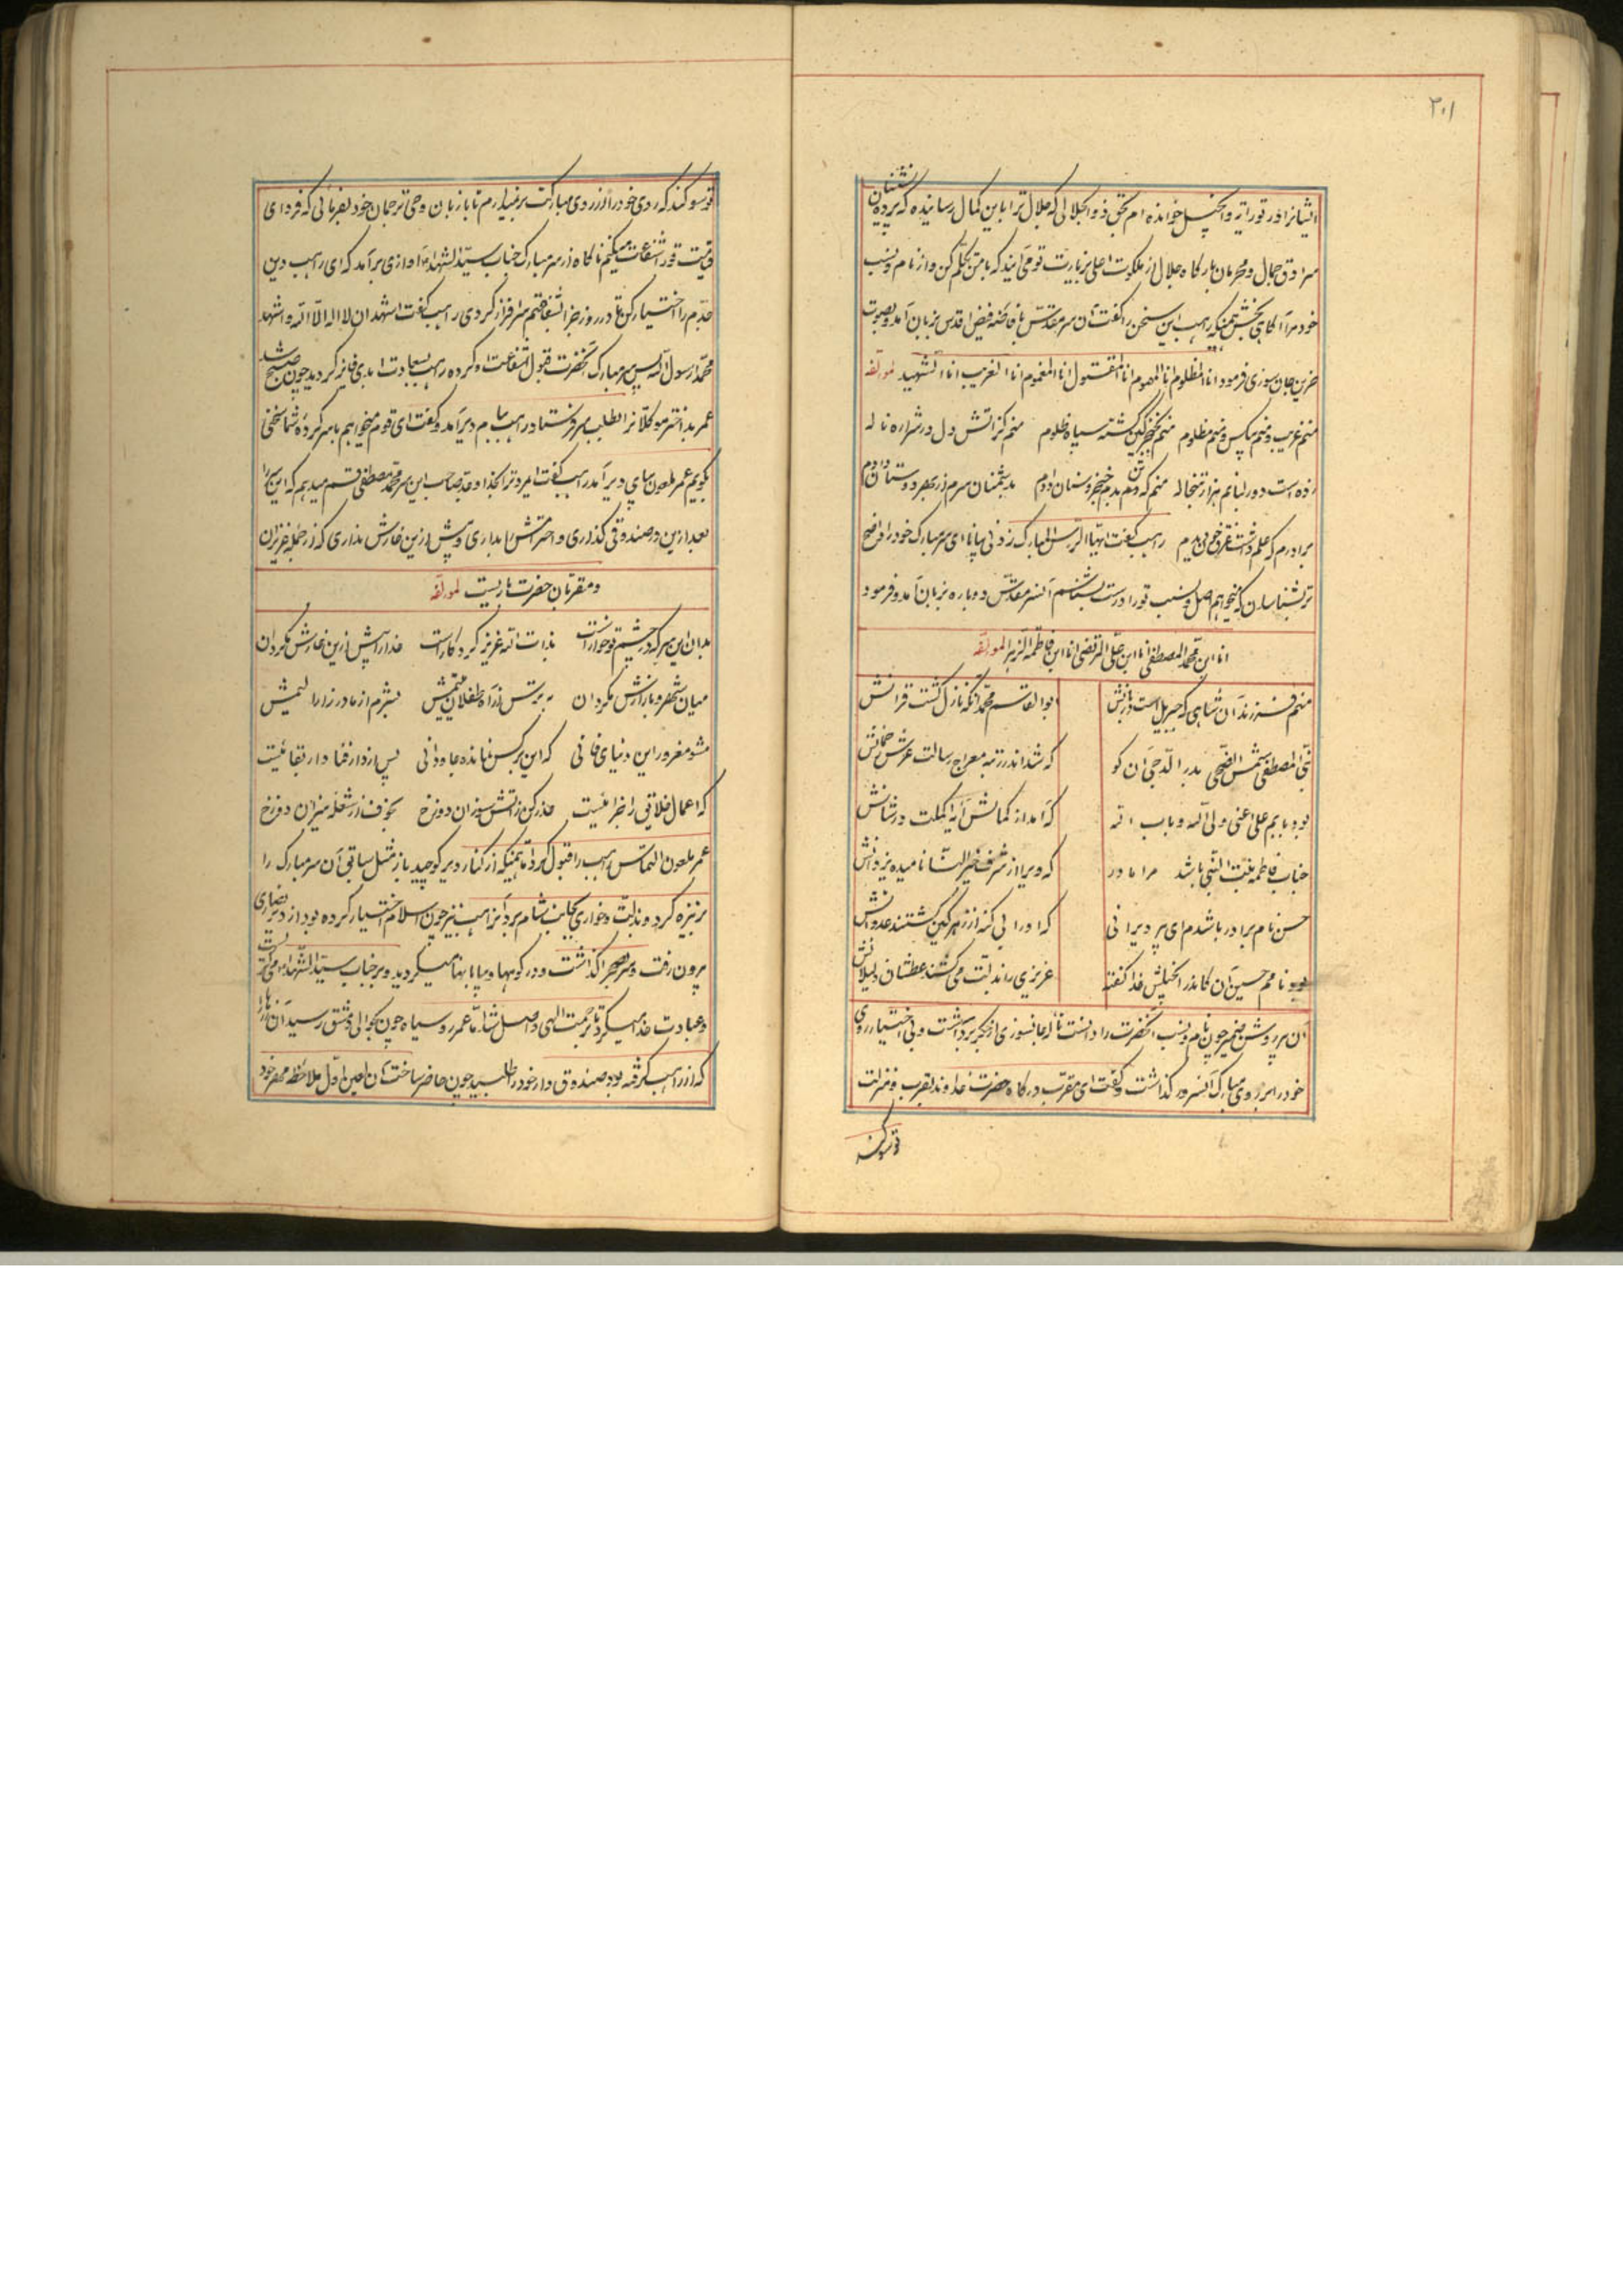 ۳۰۱
ایشانرا در توراتیه و انجیل خوانده ام بحق ذوالجلالی که جلال ترا باین کمال رسانیده که پرده نشینان
سرادق جمال و محرمان بارگاه جلال از ملکوت اعلی بزیارت تو می آیند که با من تکلم کن و از نام و نسب
خود مرا آگاهی بخش همینکه راهب این سخن را گفت آن سر مقدس بافاضه فیض اقدس بزبان آمد و بصوت
حزین جان سوزی فرمود انا المظلوم انا المهموم انا المقتول انا المغموم انا الغریب انا الشهید لمؤلفه
منم غریب و منم بیکس و منم مظلوم منم بخنجر کین کشته سپاه ظلوم منم کز آتش دل در شراره ناله
زده است دور لبانم هزار تبخاله منم که تن بدم خنجر و سنان دادم بدشمنان سرم از بهر دوستان دادم
برادرم که علم داشت غرق خون دیدم راهب گفت ایها الرأس المبارک زدنی بیانا ای سر مبارک خود را واضح
تر بشناسان که میخواهم اصل و نسب تو را درست بشناسم آنسر مقدس دوباره بزبان آمد و فرمود
انا ابن محمد المصطفی انا ابن علی المرتضی انا ابن فاطمة الزهرا لمؤلفه
منم فرزند آن شاهی که جبریل است دربانش ابوالقاسم محمد آنکه نازل گشت قرآنش
نبی المصطفی شمس الضحی بدر الدجی آن کو که شد اندر رتبه معراج رسالت عرش
بود بابم علی اعنی ولی الله و باب الله که آمد از کمالش آیه اکملت در شانش
جناب فاطمه بنت النبی باشد مرا مادر که ویرا از شرف خیر النسا نامیده یزدانش
حسن نام برادر باشدم ای پیر دیرانی که او را بی گنه از زهر کین کشتند عدوانش
بود نامم حسین آن کاندر انجیلش خدا گفته عزیزی را بذلت می کشند عطشان
آن پیر روشن ضمیر چون نام و نسب آنحضرت را دانست ناله جانسوزی از جگر برداشت و بی اختیار روی
خود را بر روی مبارک آنسرور گذاشت و گفت ای مقرب درگاه حضرت خداوند بقرب و منزلت
تو سوگند
تو سوگند که روی خود را از روی مبارکت برنمیدارم تا با زبان وحی ترجمان خود بفرمائی که فردای
قیامت تو را شفاعت میکنم ناگاه از سر مبارک جناب سید الشهداء آوازی برآمد که ای راهب دین
جدم را اختیار کن تا در روز جزا بشفاعتم سرافراز گردی راهب گفت اشهد ان لا اله الا الله و اشهد
محمدا رسول الله پس سر مبارک آنحضرت قبول شفاعت او کرده راهب بسعادت ابدی فایز گردید چون صبح شد
عمر بد اختر موکلانرا بطلب سر فرستاد راهب ببام دیر آمد و گفت ای قوم میخواهم با سر کرده شما سخنی
بگویم عمر ملعون بپای دیر آمد راهب گفت ای مرد ترا بخدا و بجد صاحب این سر محمد مصطفی قسم میدهم که این سر را
بعد ازین در صندوقی گذاری و احترامش را بداری و پیش ازین خارش نداری که از جمله عزیزان
و مقربان حضرت باریست لمؤلفه
بدان این سر که در چشم تو خوار است بذات الله عزیز کردگار است خدا را بیش ازین خارش مگردان
میان شهر و بازارش مگردان بترس از آه طفلان یتیمش بشرم از مادر زار الیمش
مشو مغرور این دنیای فانی که این بر کس نمانده جاودانی پس از دار فنا دار بقائیست
که اعمال خلایق را جزائیست حذر کن ز آتش سوزان دوزخ بخوف از شعله نیران دوزخ
عمر ملعون التماس راهب را قبول کرد تا همینکه از کنار دیر کوچید باز مثل سابق آن سر مبارک را
بر نیزه کرد و بذلت و خواری بجانب شام برد آن راهب نیز چون اسلام اختیار کرده بود از دیر نصاری
بیرون رفت و سر بصحرا گذاشت و در کوهها و بیابانها میگردید و بر جناب سید الشهداء می گریست
و عبادت خدا میکرد تا برحمت الهی واصل شد اما عمر رو سیاه چون بحوالی دمشق رسید آن زرها را
که از راهب گرفته بود صندوق دار خود را طلبید چون حاضر ساخت آن لعین اول ملاحظه مهر خود